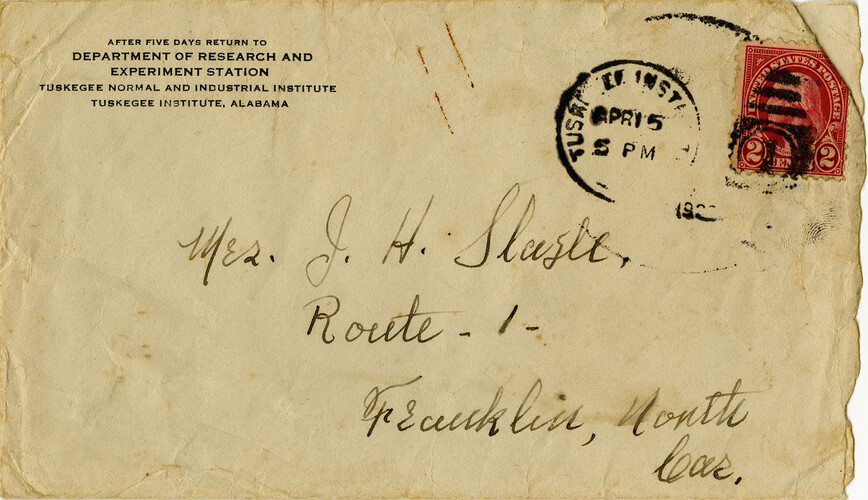 AFTER FIVE DAYS RETURN TO
DEPARTMENT OF RESEARCH AND
EXPERIMENT STATION
TUSKEGEE NORMAL AND INDUSTRIAL INSTITUTE
TUSKEGEE INSTITUTE, ALABAMA
INST
APR 15
5 PM
UNITED STATES POSTAGE
2 2
Mrs. J. H. Slagle,
Route - 1 -
Franklin, North
Car.